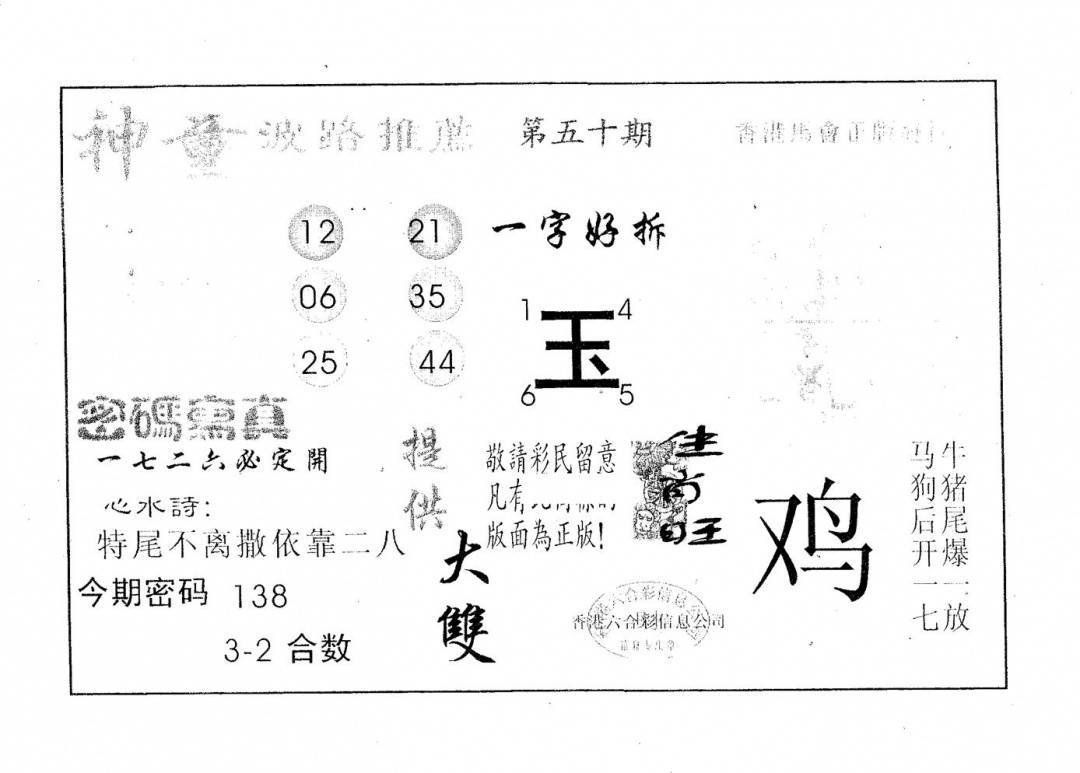 神童波路推薦 第五十期
12 21 一字好拆
06 35
25 44
1 4
玉
6 5
密碼寫真
一七二六必定開
提供
心水詩:
特尾不离撒依靠二八
今期密码 138
3-2 合数
大雙
敬請彩民留意
凡有
版面為正版!
鸡
香港六合彩信息公司
牛猪尾爆一放
马狗后开一七